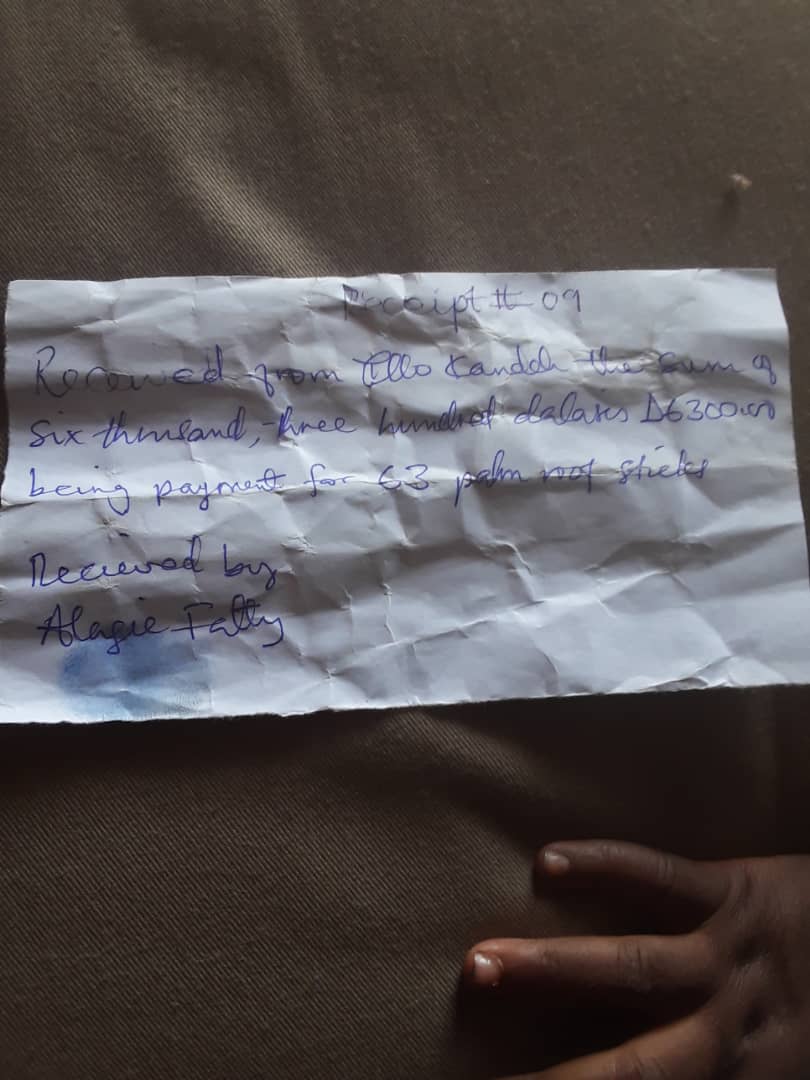 Receipt # 09
Received from Ello Kandeh the sum of
six thousand, three hundred dalasis D6300.00
being payment for 63 palm roof sticks
Recieved by
Alagie Fatty